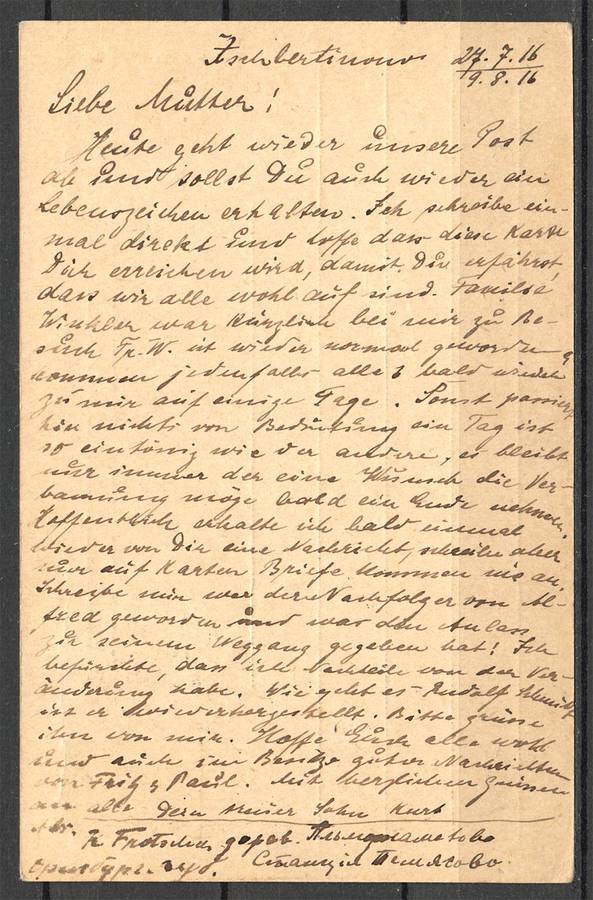 27. 7. 16
9. 8. 16
Liebe Mutter!
Heute geht wieder unsere Post
ab und sollst Du auch wieder ein
Lebenszeichen erhalten. Ich schreibe ein-
mal direkt und hoffe dass diese Karte
Dich erreichen wird, damit Du erfährst,
dass wir alle wohl auf sind. Familie
Winkler war kürzlich bei mir zu Be-
such Fr. W. ist wieder normal geworden &
kommen jedenfalls alle 3 bald wieder
zu mir auf einige Tage. Sonst passiert
hin nichts von Bedeutung ein Tag ist
so eintönig wie der andere, es bleibt
nur immer der eine Wunsch die Ver-
bannung möge bald ein Ende nehmen.
Hoffentlich erhalte ich bald einmal
wieder von Dir eine Nachricht, schreibe aber
nur auf Karten Briefe kommen nie an.
Schreibe mir wer der Nachfolger von Al-
fred geworden und was den Anlass
zu seinem Weggang gegeben hat! Ich
befürchte, dass ich Vorteile von der Ver-
änderung habe. Wie geht es Rudolf Schmidt
ist er wiederhergestellt. Bitte grüsse
ihn von mir. Hoffe Euch alle wohl
und auch im Besitze guter Nachrichten
von Fritz & Paul. Mit herzlichen Grüssen
an alle Dein treuer Sohn Kurt
Abs. K Frotscher дерев.
Оренбург. губ. Станция